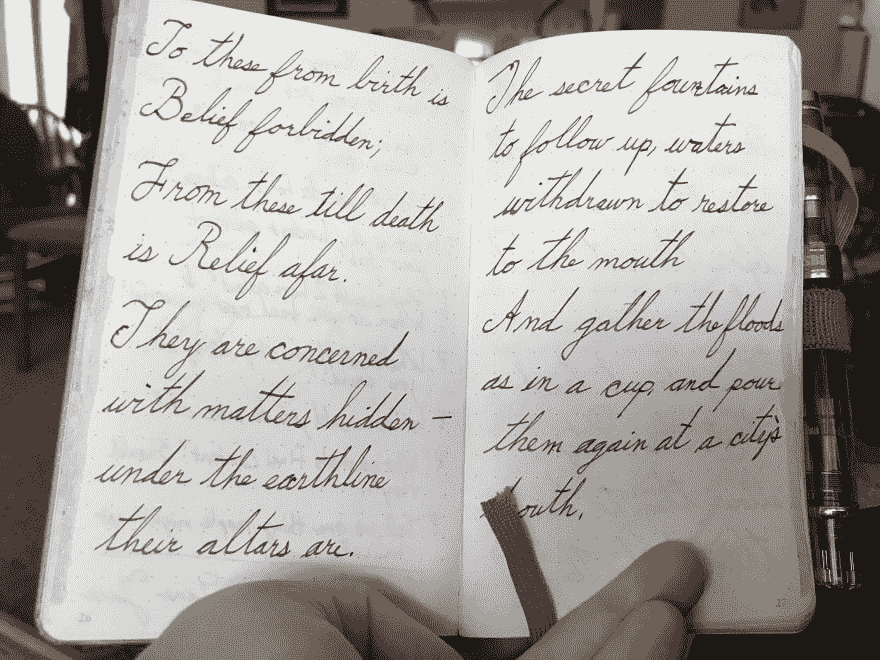 To these from birth is
Belief forbidden;
From these till death
is Relief afar.
They are concerned
with matters hidden –
under the earthline
their altars are.
The secret fountains
to follow up, waters
withdrawn to restore
to the mouth
And gather the floods
as in a cup, and pour
them again at a city's